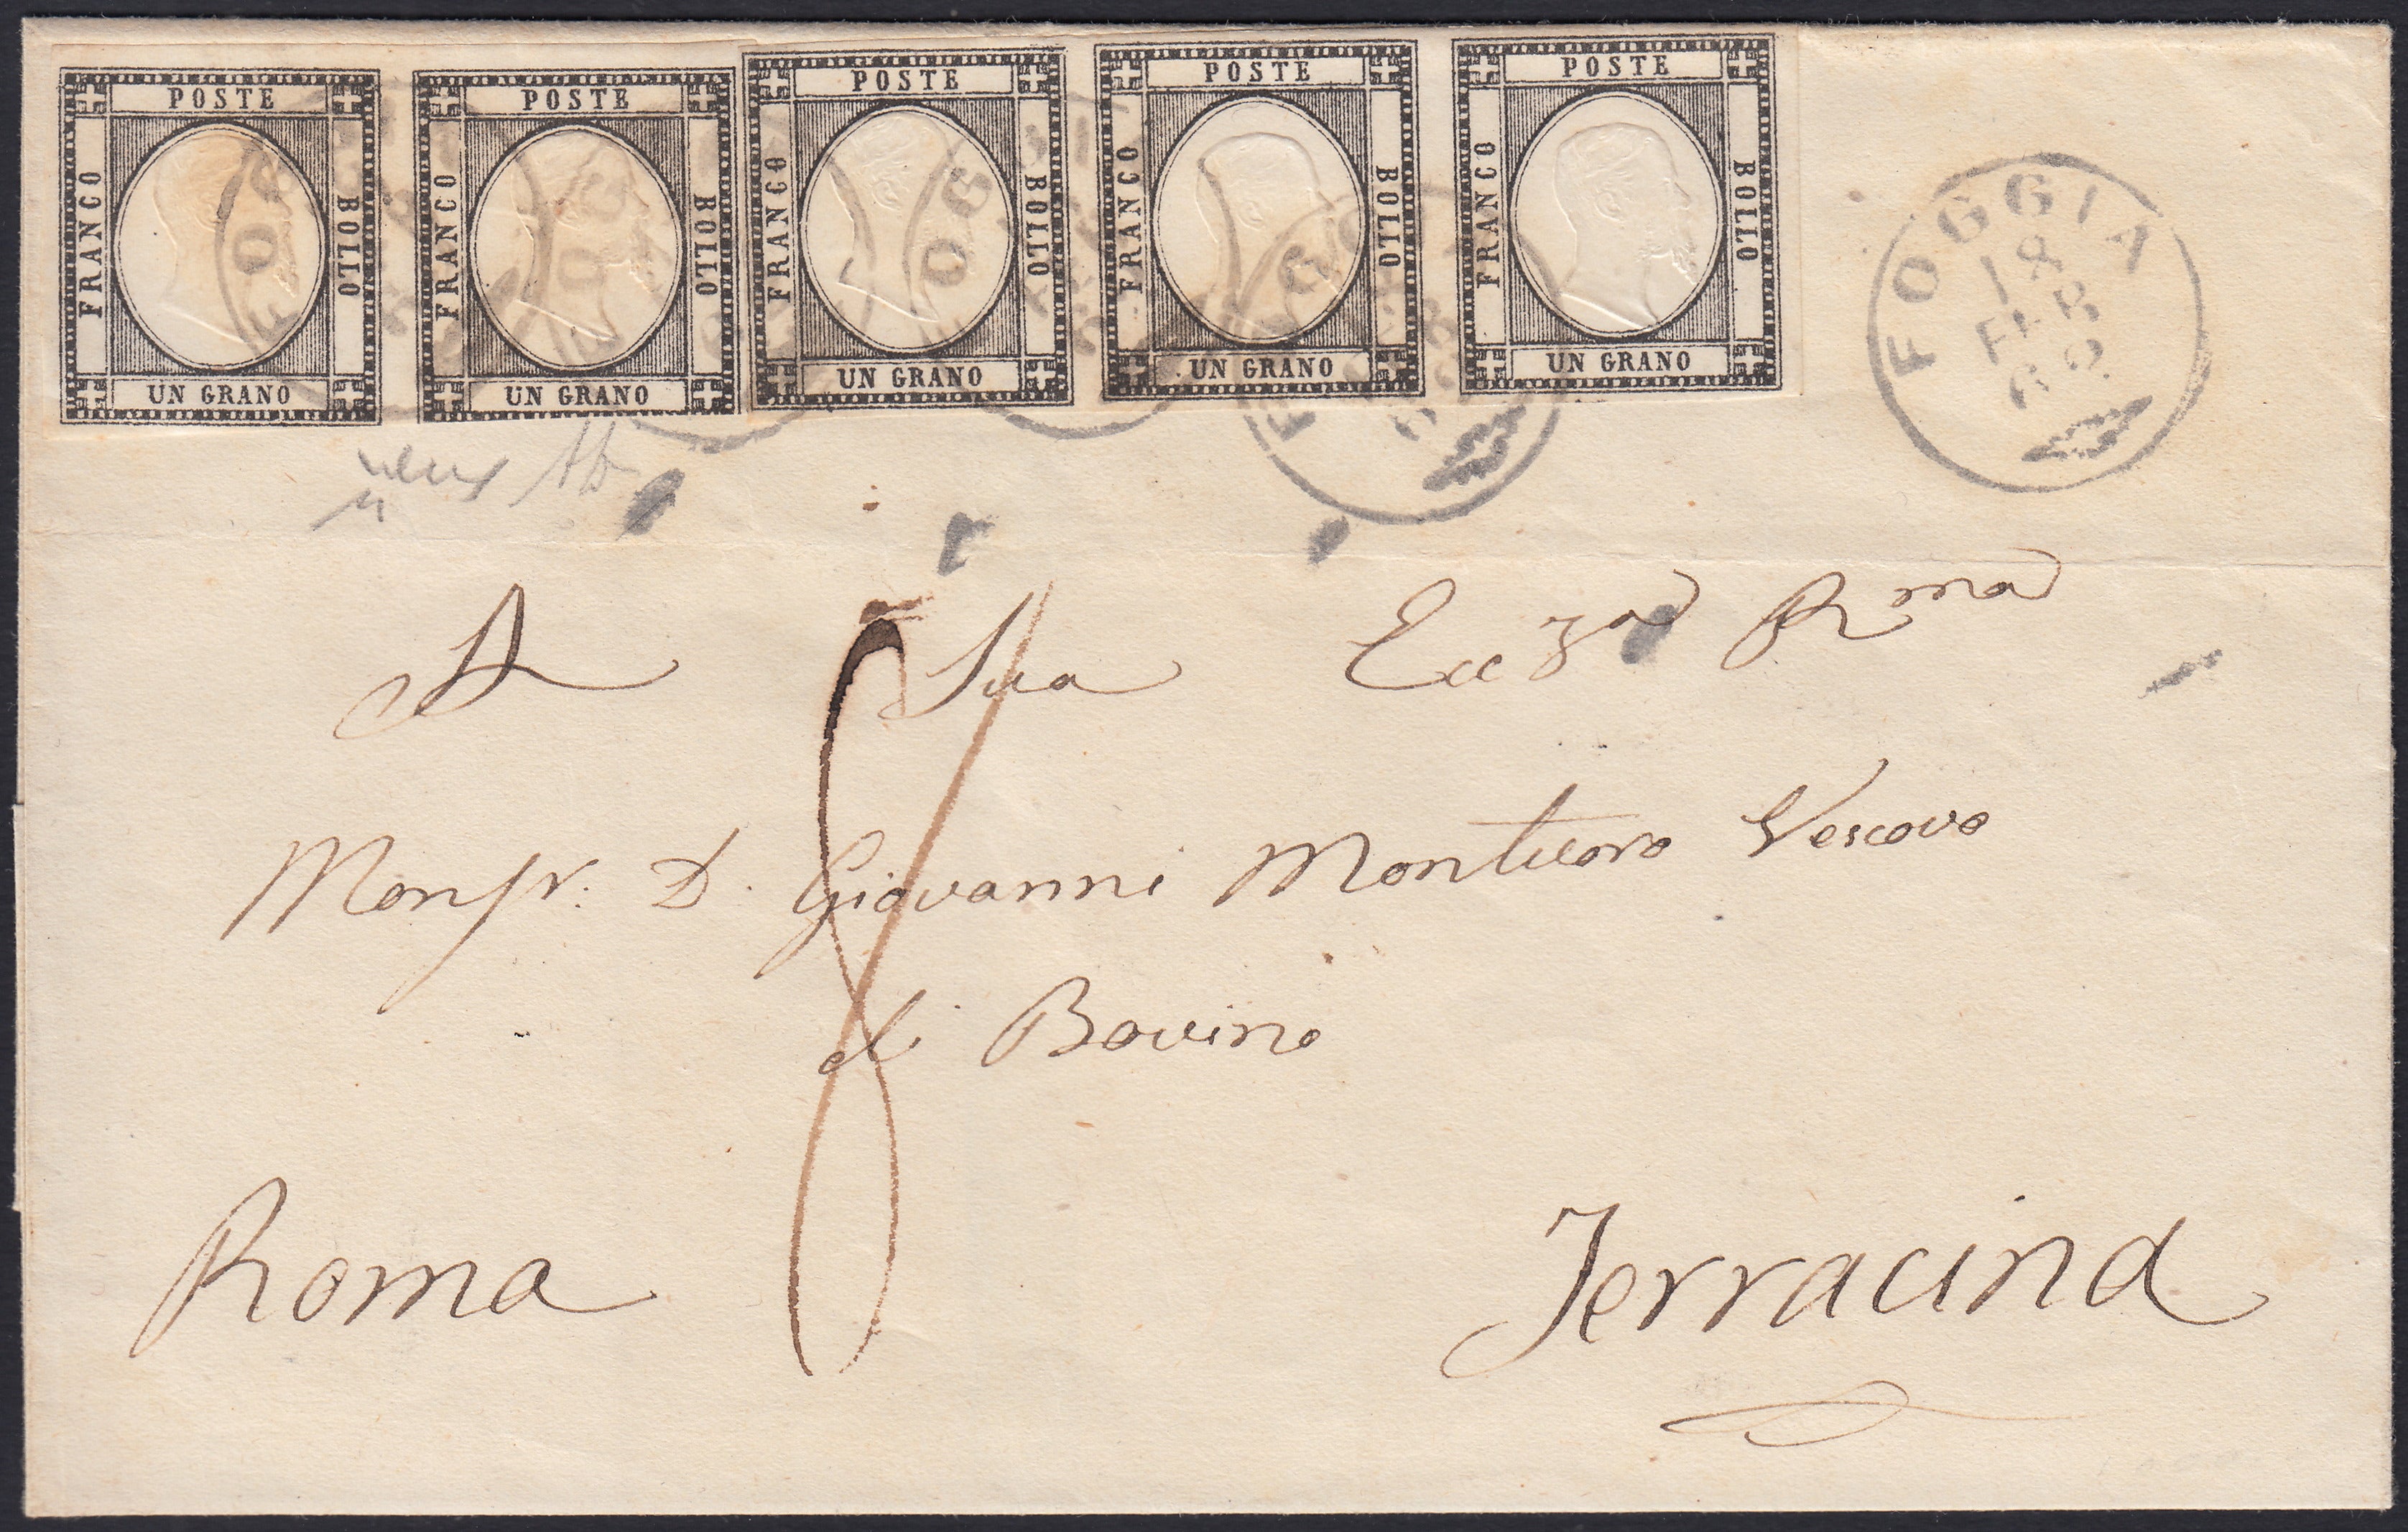 POSTE
FRANCO
BOLLO
UN GRANO
POSTE
FRANCO
BOLLO
UN GRANO
POSTE
FRANCO
BOLLO
UN GRANO
POSTE
FRANCO
BOLLO
UN GRANO
POSTE
FRANCO
BOLLO
UN GRANO
FOGGIA
18
FEB
62
A Sua Eccza Rma
8
Monsr. D. Giovanni Montuoro Vescovo
di Bovino
Roma
Terracina